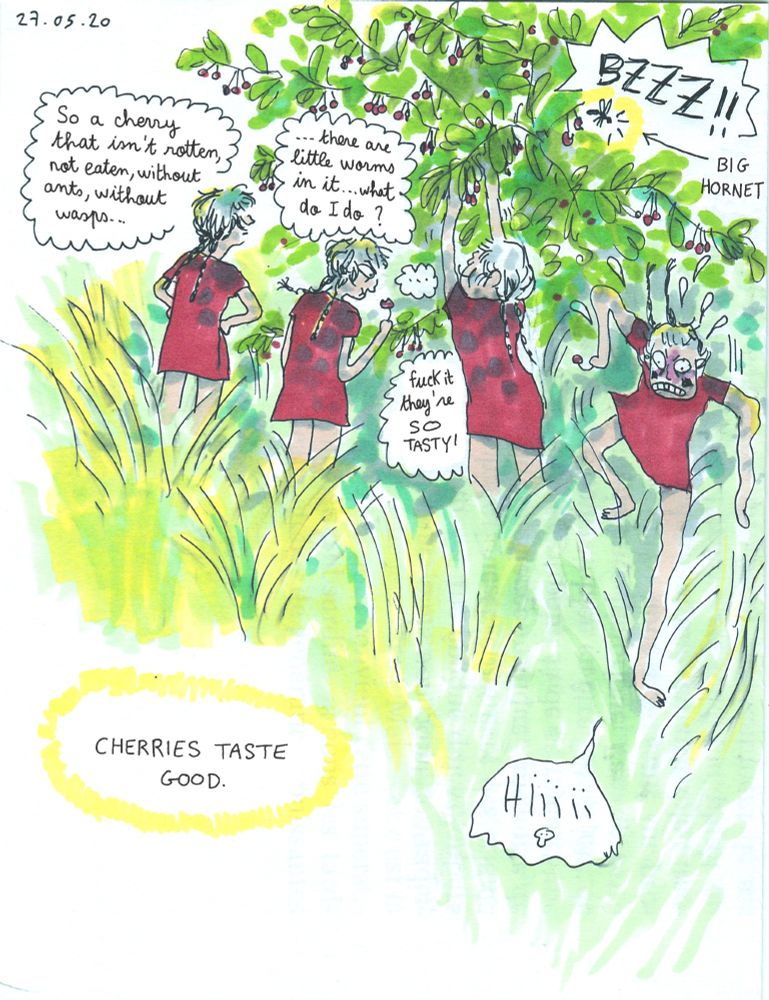 27.05.20
So a cherry
that isn't rotten,
not eaten, without
ants, without
wasps...
...there are
little worms
in it...what
do I do ?
fuck it
they're
SO
TASTY!
BZZZ!!
BIG
HORNET
CHERRIES TASTE
GOOD.
Hïïïïï